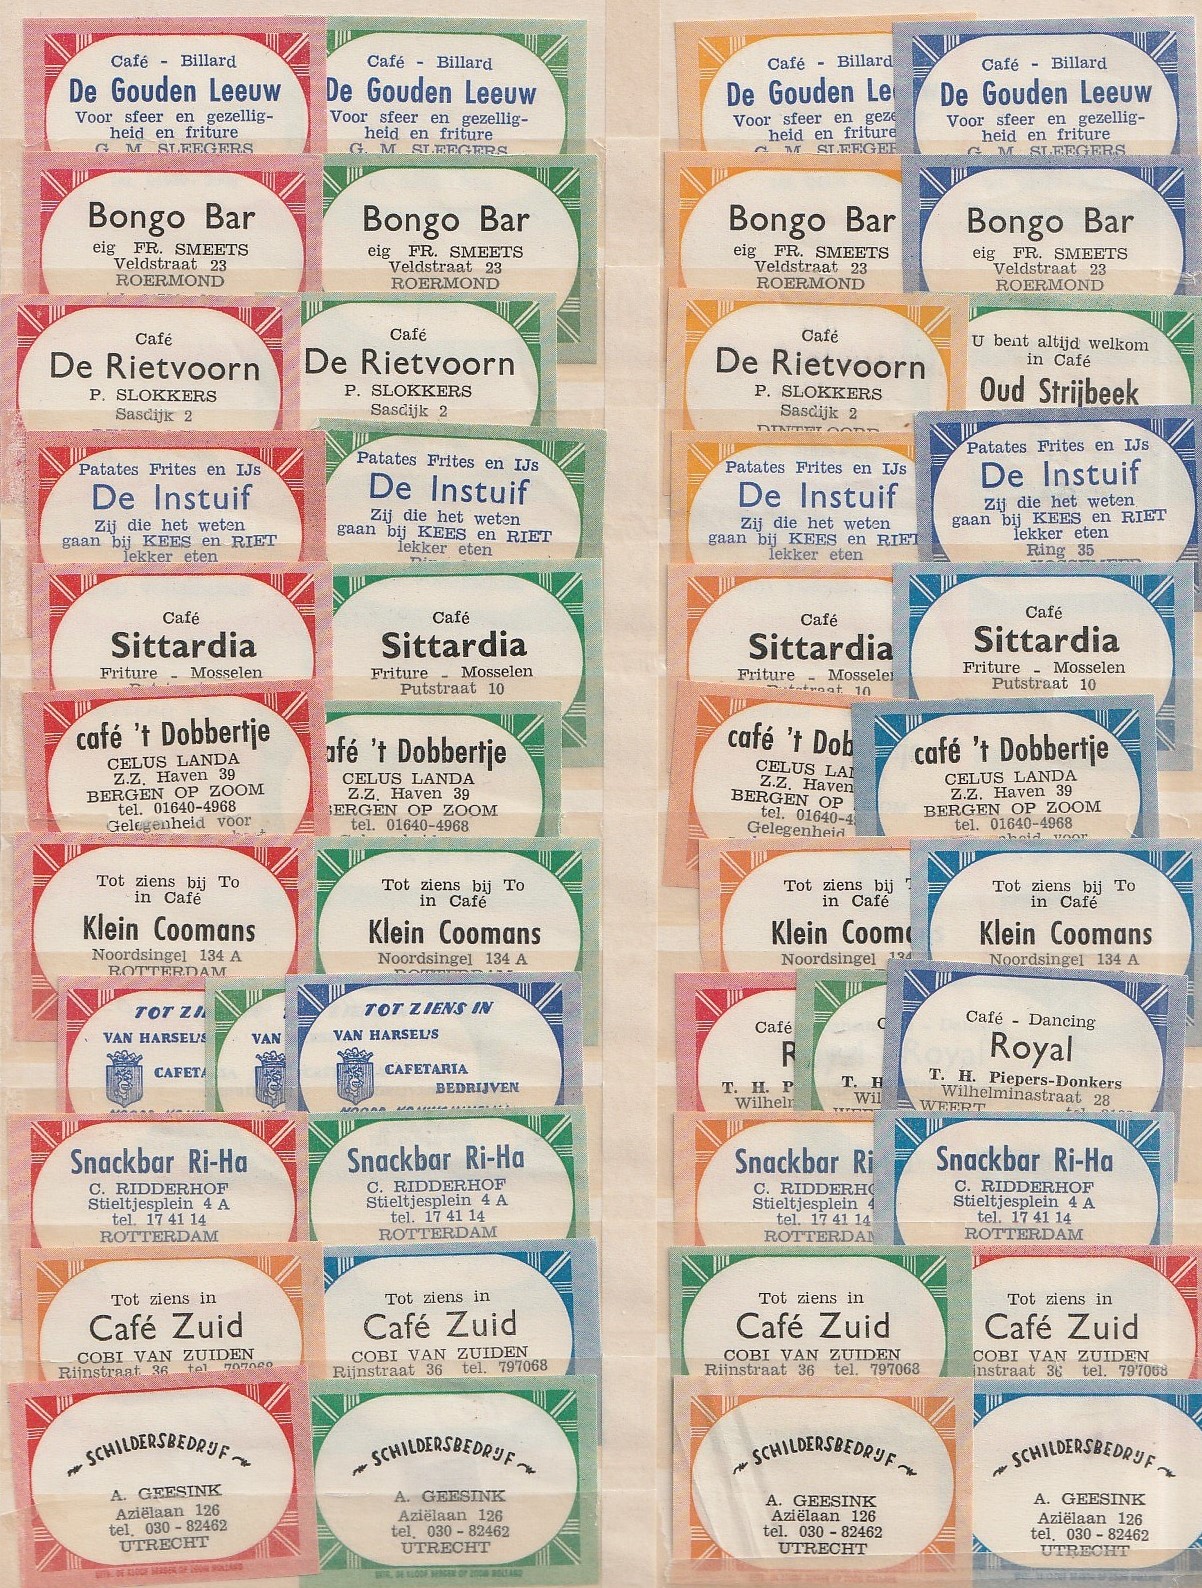 Café - Billard
De Gouden Leeuw
Voor sfeer en gezellig-
heid en friture
G. M. SLEEGERS
Café - Billard
De Gouden Leeuw
Voor sfeer en gezellig-
heid en friture
G. M. SLEEGERS
Café - Billard
De Gouden Le
Voor sfeer en geze
heid en friture
G. M. SLEEGER
Café - Billard
De Gouden Leeuw
Voor sfeer en gezellig-
heid en friture
G. M. SLEEGERS
Bongo Bar
eig FR. SMEETS
Veldstraat 23
ROERMOND
Bongo Bar
eig FR. SMEETS
Veldstraat 23
ROERMOND
Bongo Bar
eig FR. SMEETS
Veldstraat 23
ROERMOND
Bongo Bar
eig FR. SMEETS
Veldstraat 23
ROERMOND
Café
De Rietvoorn
P. SLOKKERS
Sasdijk 2
Café
De Rietvoorn
P. SLOKKERS
Sasdijk 2
Café
De Rietvoorn
P. SLOKKERS
Sasdijk 2
DINTELOORD
U bent altijd welkom
in Café
Oud Strijbeek
Patates Frites en IJs
De Instuif
Zij die het weten
gaan bij KEES en RIET
lekker eten
Patates Frites en IJs
De Instuif
Zij die het weten
gaan bij KEES en RIET
lekker eten
Ring
Patates Frites en IJs
De Instuif
Zij die het weten
gaan bij KEES en RIET
lekker eten
Patates Frites en IJs
De Instuif
Zij die het weten
gaan bij KEES en RIET
lekker eten
Ring 35
Café
Sittardia
Friture - Mosselen
Café
Sittardia
Friture - Mosselen
Putstraat 10
Café
Sittardia
Friture - Mosselen
Putstraat 10
Café
Sittardia
Friture - Mosselen
Putstraat 10
café 't Dobbertje
CELUS LANDA
Z.Z. Haven 39
BERGEN OP ZOOM
tel. 01640-4968
Gelegenheid voor
afé 't Dobbertje
CELUS LANDA
Z.Z. Haven 39
BERGEN OP ZOOM
tel. 01640-4968
café 't Dob
CELUS LA
Z.Z. Haven
BERGEN OP
tel. 01640-4
Gelegenheid
café 't Dobbertje
CELUS LANDA
Z.Z. Haven 39
BERGEN OP ZOOM
tel. 01640-4968
heid voor
Tot ziens bij To
in Café
Klein Coomans
Noordsingel 134 A
ROTTERDAM
Tot ziens bij To
in Café
Klein Coomans
Noordsingel 134 A
ROTTERDAM
Tot ziens bij T
in Café
Klein Coom
Noordsingel
ROTTERDAM
Tot ziens bij To
in Café
Klein Coomans
Noordsingel 134 A
ROTTERDAM
TOT ZI
VAN HARSEL'S
CAFETA
VAN
TOT ZIENS IN
VAN HARSEL'S
CAFETARIA
BEDRIJVEN
Café
R
T. H. P
Wilhelm
C
T. H
Wil
WEER
Café - Dancing
Royal
T. H. Piepers-Donkers
Wilhelminastraat 28
WEERT
Snackbar Ri-Ha
C. RIDDERHOF
Stieltjesplein 4 A
tel. 17 41 14
ROTTERDAM
Snackbar Ri-Ha
C. RIDDERHOF
Stieltjesplein 4 A
tel. 17 41 14
ROTTERDAM
Snackbar Ri
C. RIDDERHO
Stieltjesplein 4
tel. 17 41 14
ROTTERDAM
Snackbar Ri-Ha
C. RIDDERHOF
Stieltjesplein 4 A
tel. 17 41 14
ROTTERDAM
Tot ziens in
Café Zuid
COBI VAN ZUIDEN
Rijnstraat 36 tel. 797068
Tot ziens in
Café Zuid
COBI VAN ZUIDEN
Rijnstraat 36 tel. 797068
Tot ziens in
Café Zuid
COBI VAN ZUIDEN
Rijnstraat 36 tel. 797068
Tot ziens in
Café Zuid
COBI VAN ZUIDEN
nstraat 36 tel. 797068
SCHILDERSBEDRIJF
A. GEESINK
Aziëlaan 126
tel. 030 - 82462
UTRECHT
SCHILDERSBEDRIJF
A. GEESINK
Aziëlaan 126
tel. 030 - 82462
UTRECHT
SCHILDERSBEDRIJF
A. GEESINK
Aziëlaan 126
tel. 030 - 82462
UTRECHT
SCHILDERSBEDRIJF
A. GEESINK
Aziëlaan 126
tel. 030 - 82462
UTRECHT